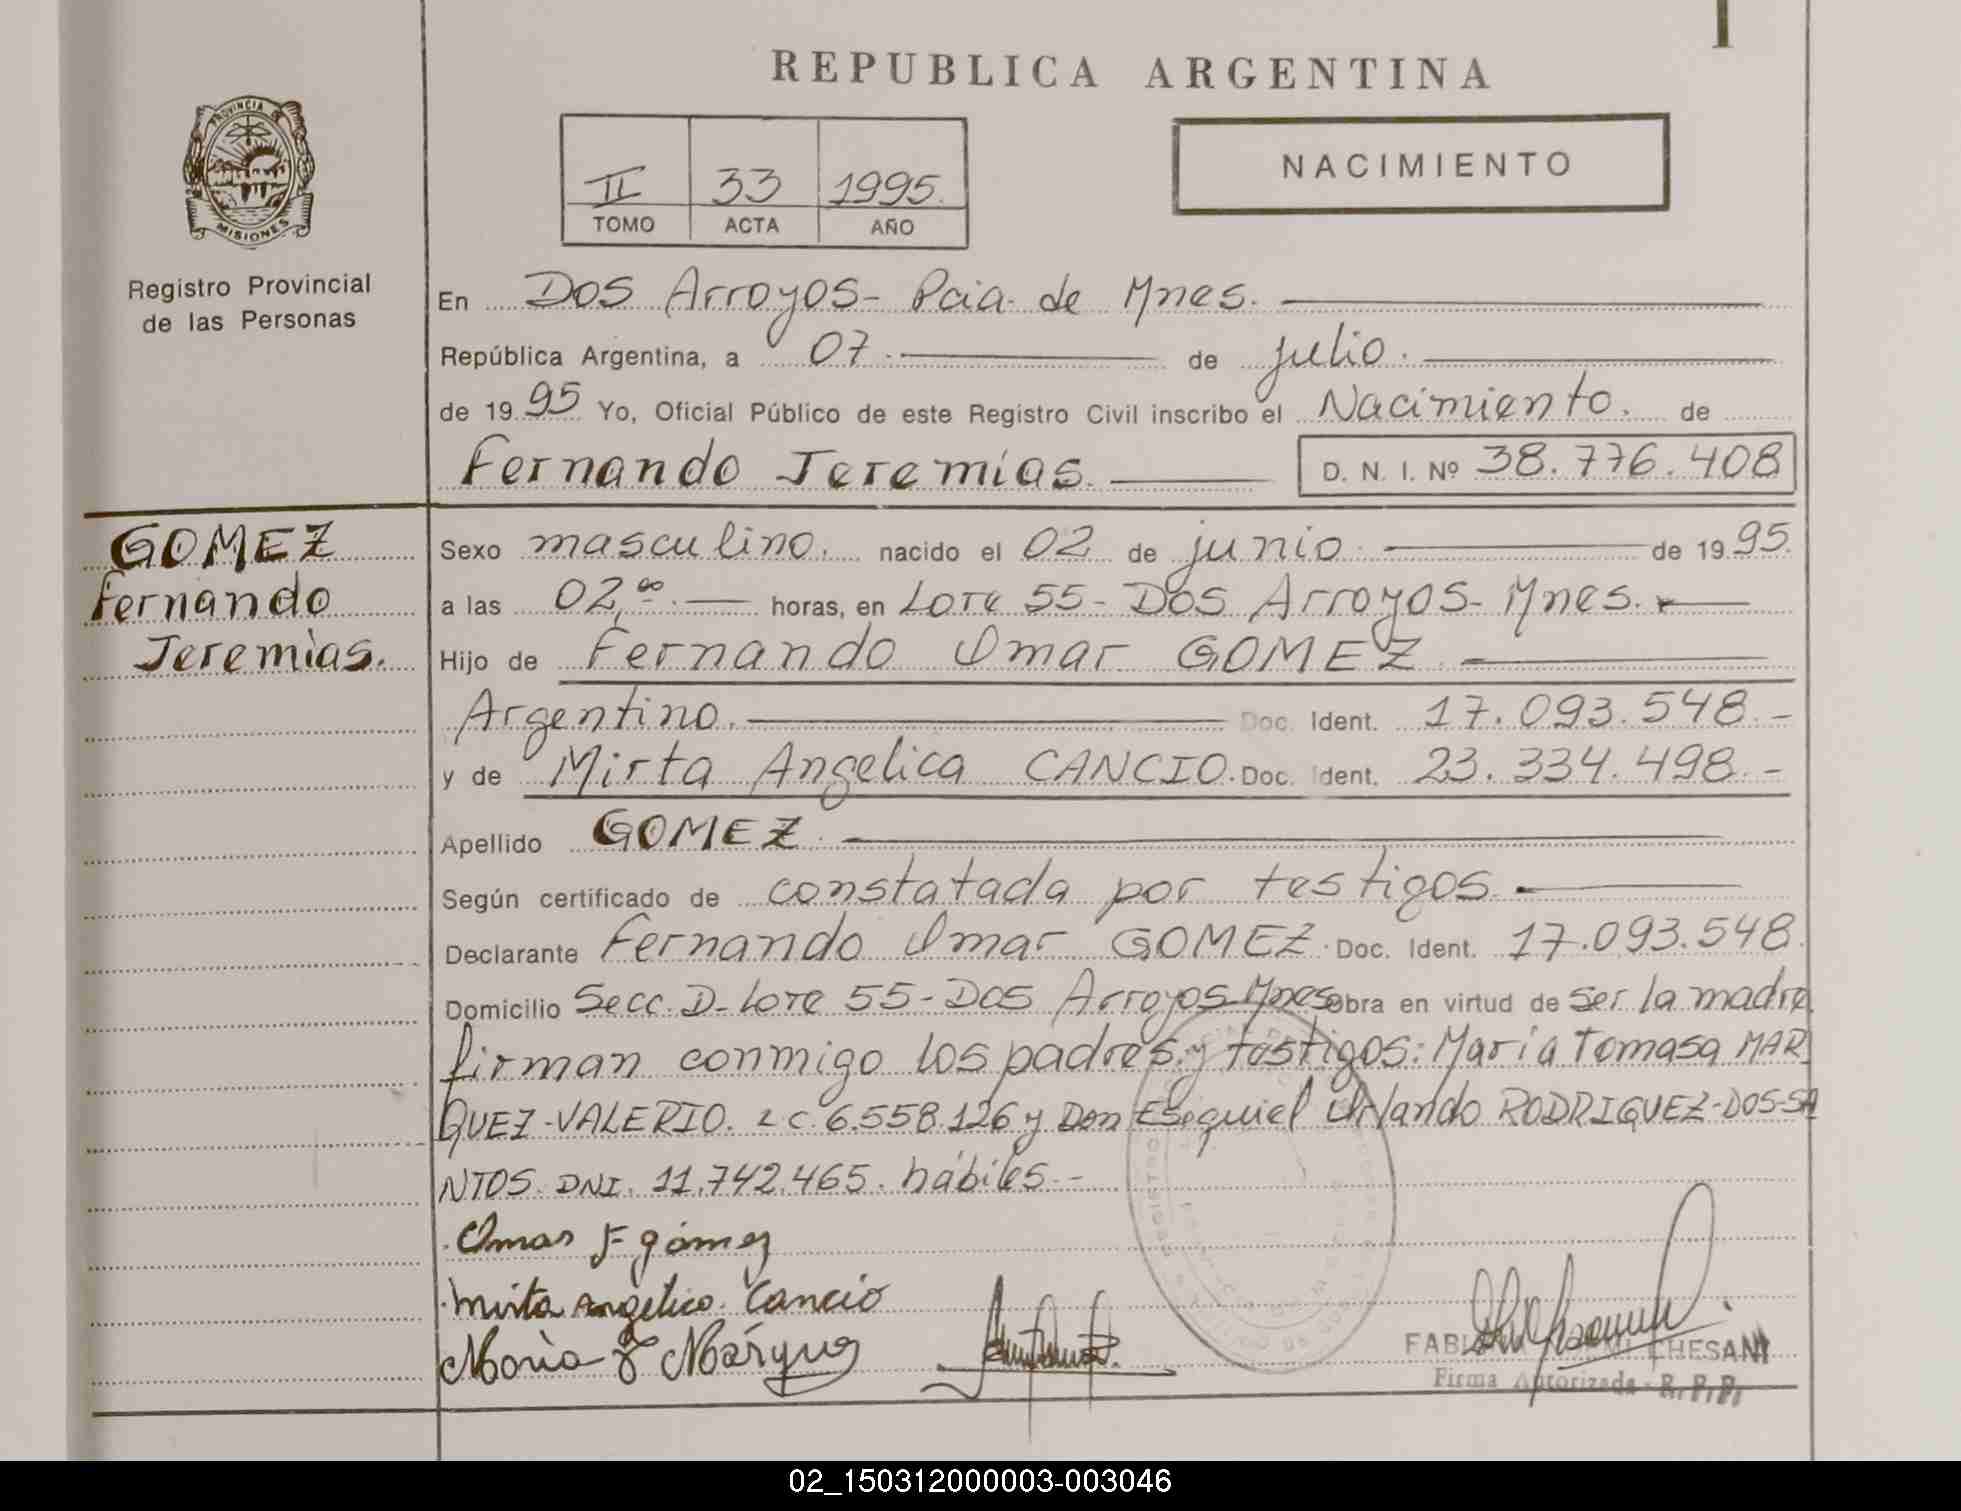 REPUBLICA ARGENTINA
PROVINCIA
MISIONES
Registro Provincial
de las Personas
II 33 1995.
TOMO ACTA AÑO
NACIMIENTO
En Dos Arroyos- Pcia. de Mnes.
República Argentina, a 07. de julio.
de 1995 Yo, Oficial Público de este Registro Civil inscribo el Nacimiento. de
Fernando Jeremías. D. N. I. Nº 38.776.408
GOMEZ
Fernando
Jeremías.
Sexo masculino. nacido el 02 de junio. de 1995.
a las 02,ºº. horas, en Lote 55- Dos Arroyos- Mnes.
Hijo de Fernando Omar GOMEZ
Argentino. Doc. Ident. 17.093.548.-
y de Mirta Angelica CANCIO. Doc. Ident. 23.334.498.-
Apellido GOMEZ.
Según certificado de constatada por testigos.
Declarante Fernando Omar GOMEZ. Doc. Ident. 17.093.548.
Domicilio Secc. D- Lote 55- Dos Arroyos Mnes Obra en virtud de ser la madre
firman conmigo los padres y testigos: María Tomasa MAR
QUEZ-VALERIO. LC 6.558.126 y Don Esequiel Orlando RODRIGUEZ-DOS-SA
NTOS. DNI. 11.742.465. hábiles.-
Omar F gómez
Mirta Angelica Cancio
María T Márquez
Firma Autorizada - R. P. P.
02_150312000003-003046